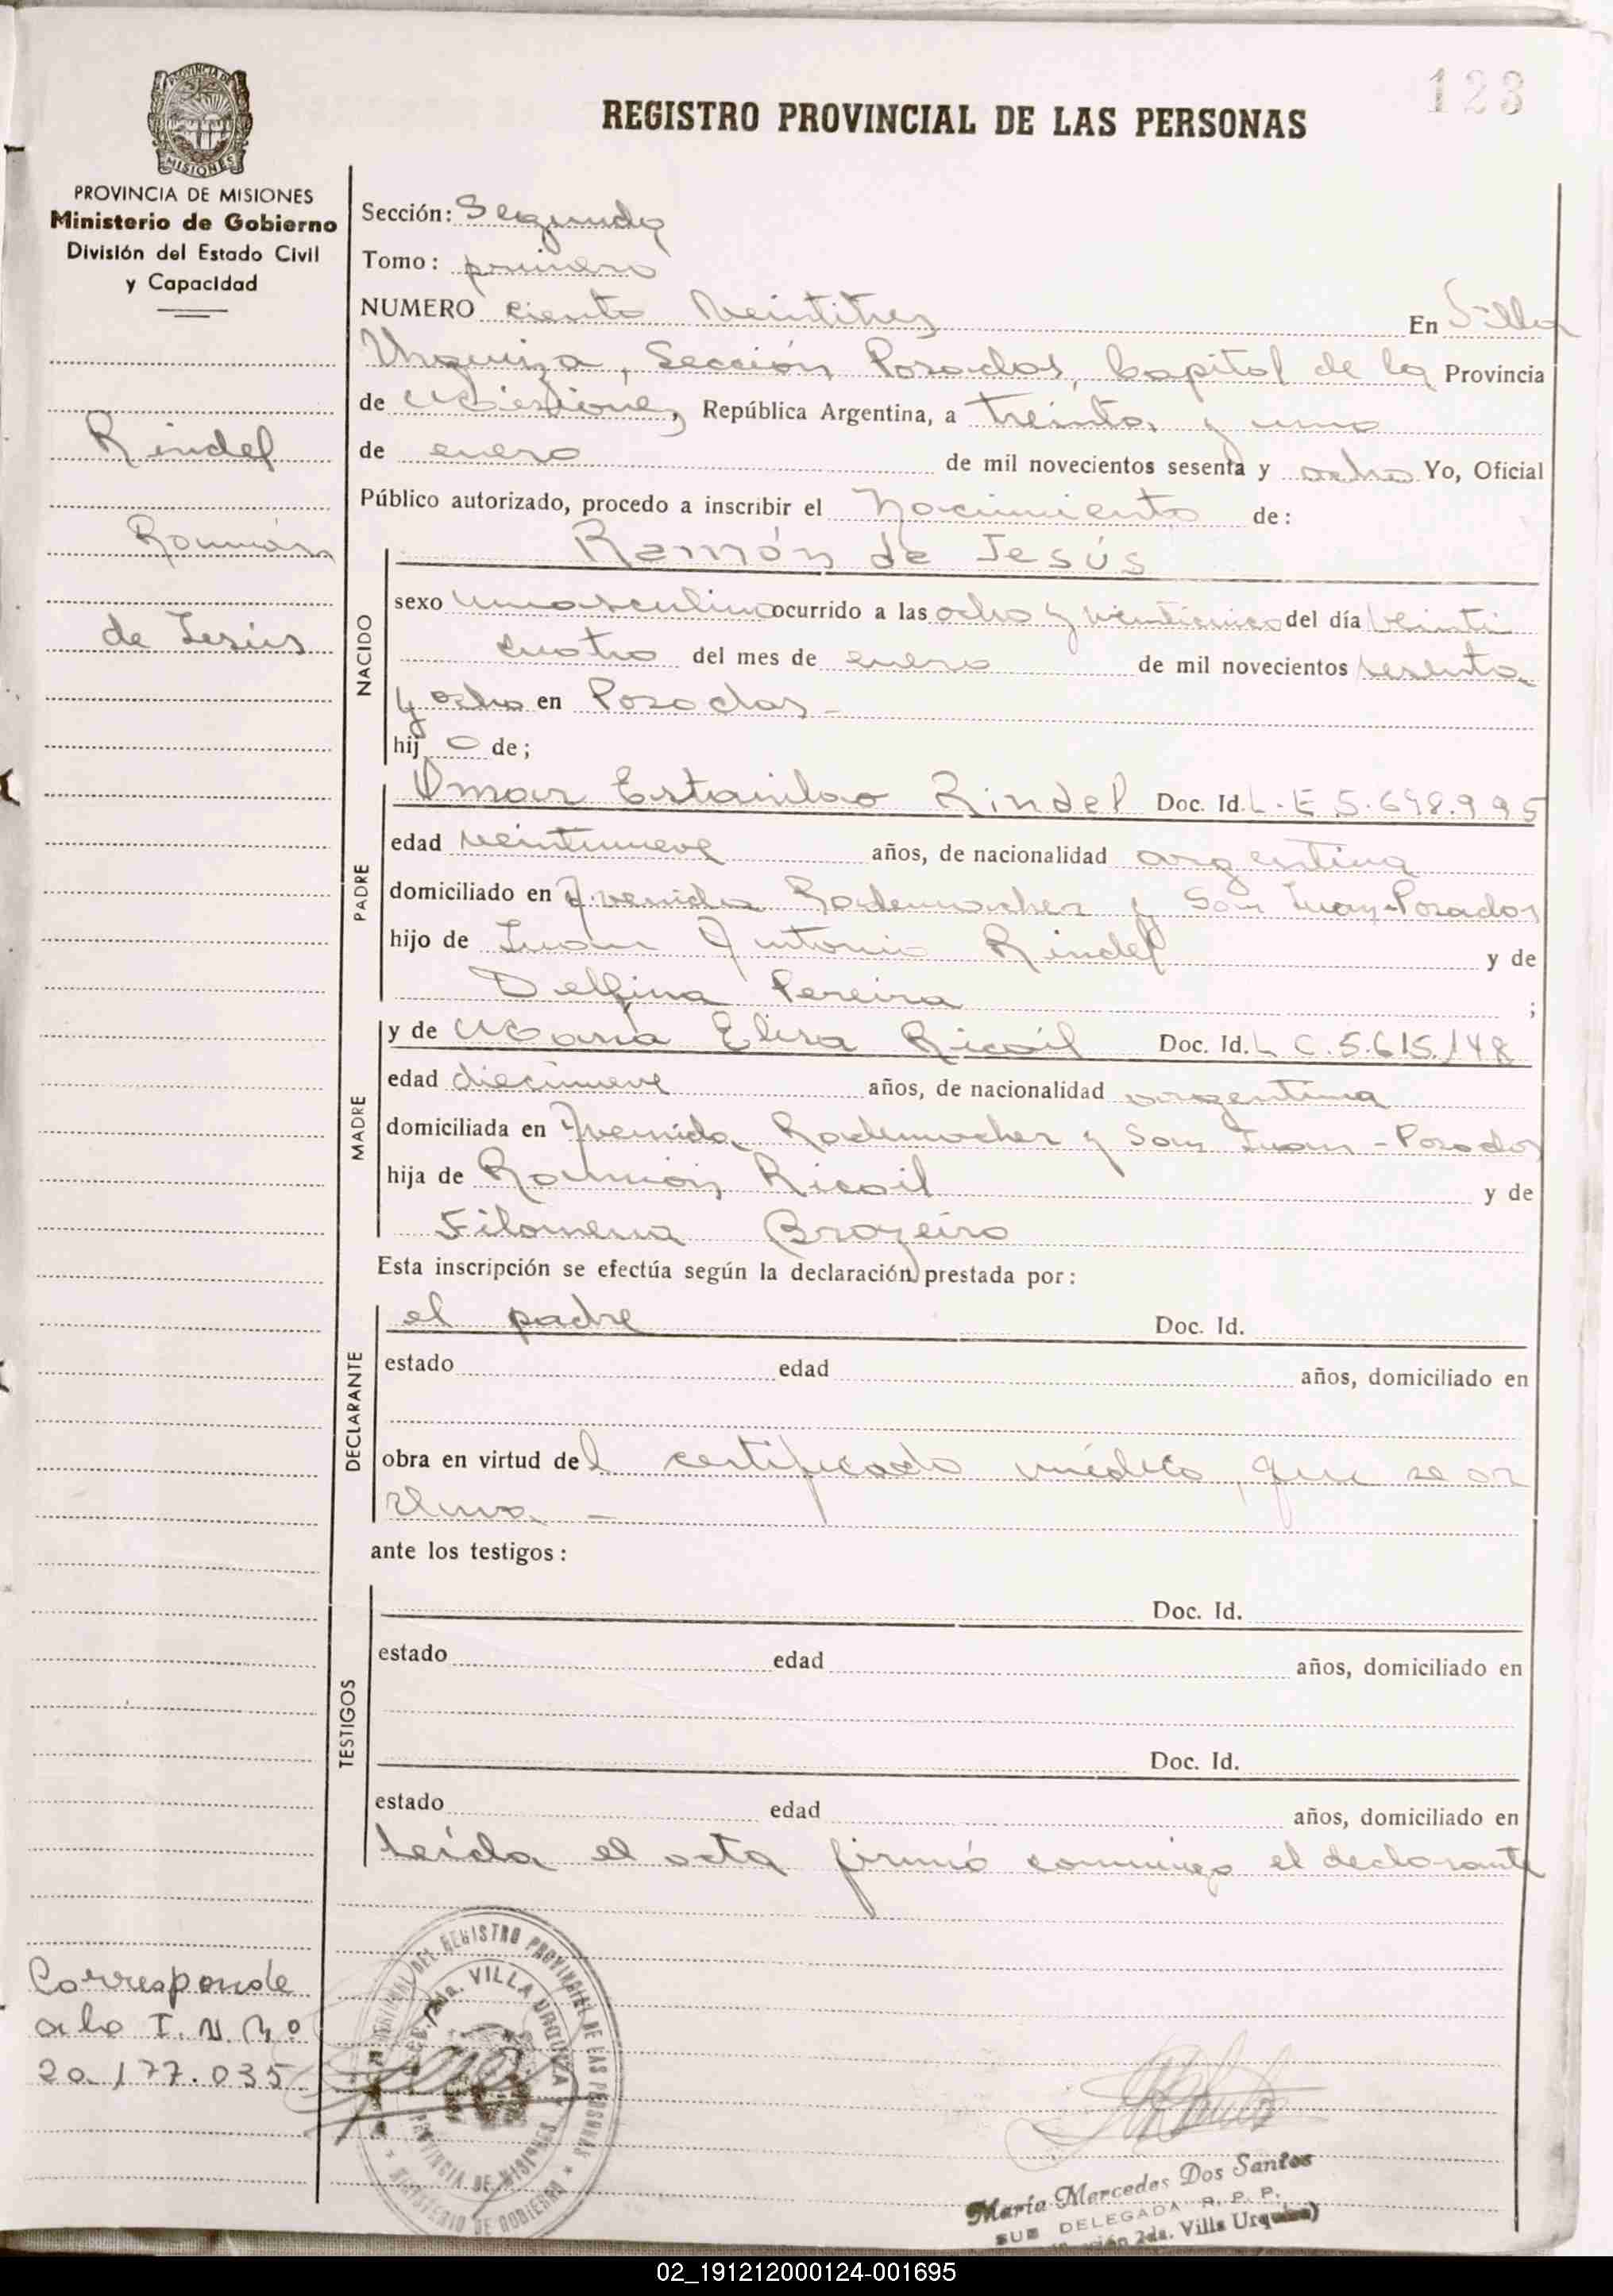 123
REGISTRO PROVINCIAL DE LAS PERSONAS
PROVINCIA DE MISIONES
Ministerio de Gobierno
División del Estado Civil
y Capacidad
Rindel
Ramón
de Jesús
Sección: Segunda
Tomo: primero
NUMERO ciento veintitres En Villa
Urquiza, Sección Posadas, Capital de la Provincia
de Misiones, República Argentina, a treinta y uno
de enero de mil novecientos sesenta y ocho Yo, Oficial
Público autorizado, procedo a inscribir el Nacimiento de:
NACIDO
Ramón de Jesús
sexo masculino ocurrido a las ocho y veinticinco del día veinti
cuatro del mes de enero de mil novecientos sesenta
y ocho en Posadas -
hij o de;
PADRE
Omar Estanilao Rindel Doc. Id. L.E 5.698.995
edad veintinueve años, de nacionalidad argentina
domiciliado en Avenida Rademacher y San Juan-Posadas
hijo de Juan Antonio Rindel y de
Delfina Pereira ;
MADRE
y de María Elisa Ricail Doc. Id. L C.5.615.148
edad diecinueve años, de nacionalidad argentina
domiciliada en Avenida Rademacher y San Juan - Posadas
hija de Ramón Ricail y de
Filomena Brozeiro
Esta inscripción se efectúa según la declaración prestada por:
DECLARANTE
el padre Doc. Id.
estado edad años, domiciliado en
obra en virtud del certificado médico, que se ar
chiva. -
ante los testigos:
TESTIGOS
Doc. Id.
estado edad años, domiciliado en
Doc. Id.
estado edad años, domiciliado en
Leída el acta firmó conmigo el declarante
Corresponde
a la I.N. Nº
20.177.035
DEL REGISTRO PROVINCIAL DE LAS PERSONAS
2da. VILLA URQUIZA
PROVINCIA DE MISIONES
MINISTERIO DE GOBIERNO
María Mercedes Dos Santos
SUB DELEGADA R. P. P.
2da. Villa Urquiza)
02_191212000124-001695